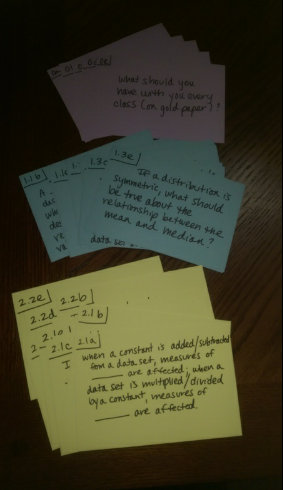 What should you
have with you every
class (on gold paper)?
1.1b
1.3e
If a distribution is
symmetric, what should
be true about the
relationship between the
mean and median?
data set
2.2e
2.2b
2.2d
2.1b
2.1c
2.1a
I
when a constant is added/subtracted
from a data set, measures of
____ are affected; when a
data set is multiplied/divided
by a constant, measures of
____ are affected.